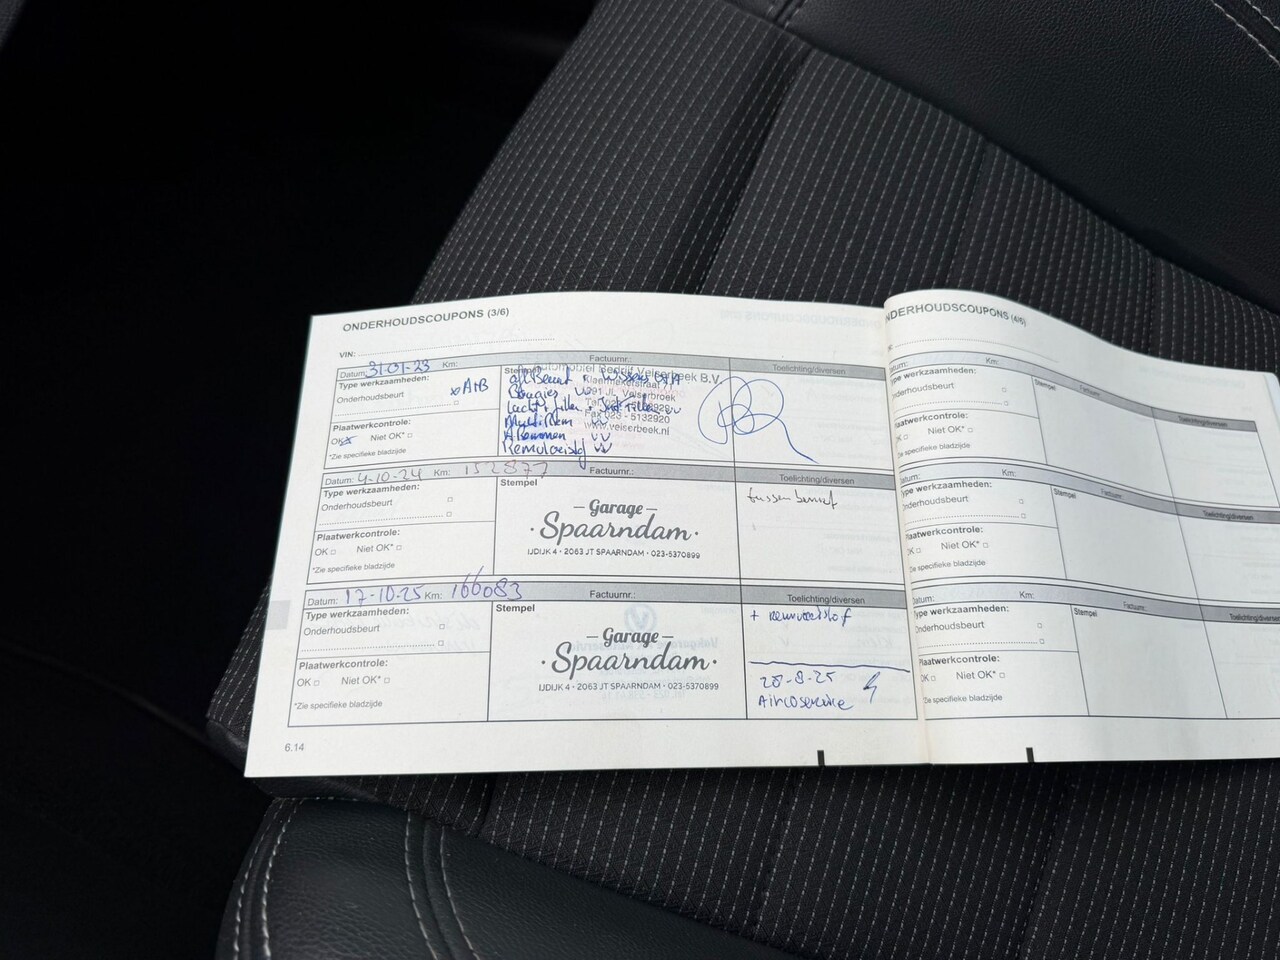 ONDERHOUDSCOUPONS (3/6)
VIN:
Datum: 31-01-23 Km: Factuurnr.:
Type werkzaamheden: Stempel Toelichting/diversen
Onderhoudsbeurt
Plaatwerkcontrole:
OK Niet OK*
*Zie specifieke bladzijde
Automobiel Bedrijf Velserbeek B.V.
JL Velserbeek
Fax 023 - 5132920
www.velserbeek.nl
Bougies
Remvloeistof
Datum: 4-10-24 Km: 152877 Factuurnr.:
Type werkzaamheden: Stempel Toelichting/diversen
Onderhoudsbeurt
Plaatwerkcontrole:
OK Niet OK*
*Zie specifieke bladzijde
Garage
Spaarndam
IJDIJK 4 • 2063 JT SPAARNDAM • 023-5370899
tussenbeurt
Datum: 17-10-25 Km: 166083 Factuurnr.:
Type werkzaamheden: Stempel Toelichting/diversen
Onderhoudsbeurt
Plaatwerkcontrole:
OK Niet OK*
*Zie specifieke bladzijde
Garage
Spaarndam
IJDIJK 4 • 2063 JT SPAARNDAM • 023-5370899
+ remvloeistof
28-8-25
Aircoservice
6.14
ONDERHOUDSCOUPONS (4/6)
Datum: Km:
Type werkzaamheden: Stempel Factuurnr.: Toelichting/diversen
Onderhoudsbeurt
Plaatwerkcontrole:
OK Niet OK*
*Zie specifieke bladzijde
Datum: Km:
Type werkzaamheden: Stempel Factuurnr.: Toelichting/diversen
Onderhoudsbeurt
Plaatwerkcontrole:
OK Niet OK*
*Zie specifieke bladzijde
Datum: Km:
Type werkzaamheden: Stempel Factuurnr.: Toelichting/diversen
Onderhoudsbeurt
Plaatwerkcontrole:
OK Niet OK*
*Zie specifieke bladzijde